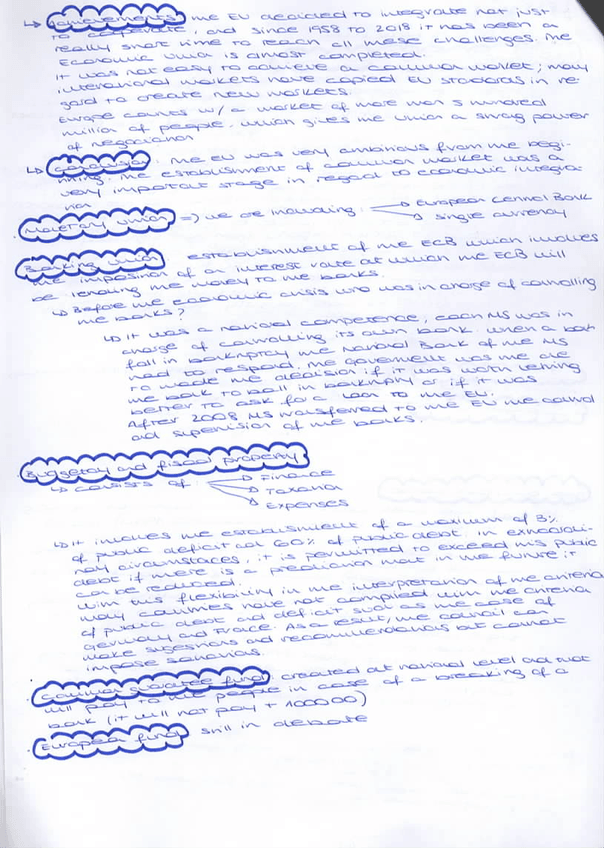 ↳ Achievements: the EU decided to integrate not just
to cooperate, and since 1958 to 2018 it has been a
really short time to reach all these challenges. The
Economic Union is almost completed.
It was not easy to achieve a common market; many
international markets have copied EU standards in re-
gard to create new markets.
Europe counts w/ a market of more than 5 hundred
million of people, which gives the Union a strong power
of negotiation
↳ Conclusion: the EU was very ambitious from the begi-
nning. The establishment of common market was a
very important stage in regard to economic integra-
tion
· Monetary Union => we are including: → European Central Bank
→ Single currency
· Banking Union establishment of the ECB which involves
the imposition of an interest rate at which the ECB will
be lending the money to the banks.
↳ Before the economic crisis who was in charge of controlling
the banks?
↳ It was a national competence, each MS was in
charge of controlling its own bank. When a bank
fall in bankruptcy the National Bank of the MS
had to respond. The government was the one
to made the decision if it was worth letting
the bank to fall in bankruptcy or if it was
better to ask for a loan to the EU.
After 2008 MS transferred to the EU the control
and supervision of the banks.
· Budgetary and fiscal property
↳ consists of: → Finance
→ Taxation
→ Expenses
↳ It involves the establishment of a maximum of 3%
of public deficit and 60% of public debt. In extraordi-
nary circumstances, it is permitted to exceed this public
debt if there is a prediction that in the future it
can be reduced.
With this flexibility in the interpretation of the criteria
many countries have not complied with the criteria
of public debt and deficit such as the case of
Germany and France. As a result, the council can
make suggestions and recommendations but cannot
impose sanctions
· Common guarantee fund: created at national level and that
will pay to the people in case of a breaking of a
bank (it will not pay + 100000)
· European fund still in debate